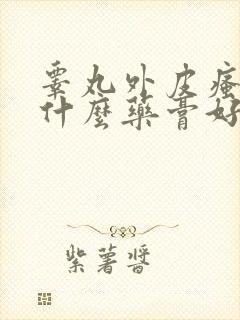 睾丸外皮瘙
什麼藥膏好
紫薯醬